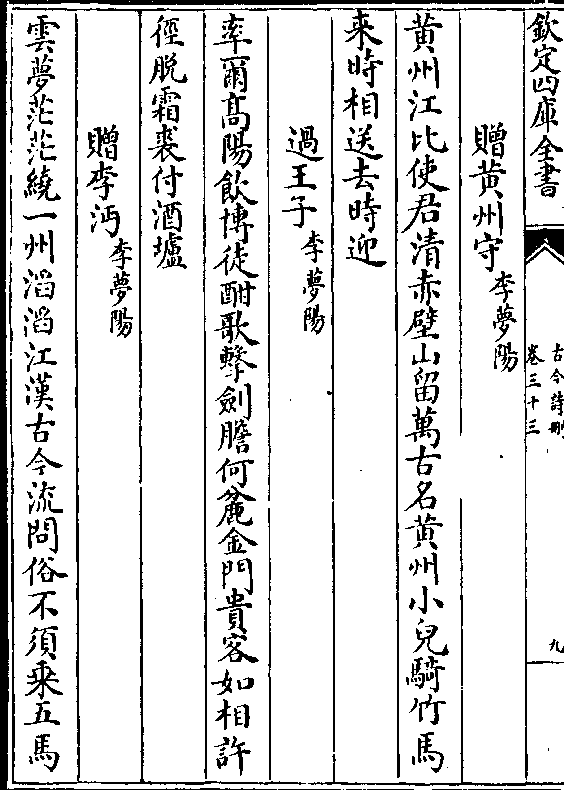 欽定四庫全書
古今詩刪
卷三十三
九
贈黄州守李夢陽
黄州江比使君清赤壁山留萬古名黄州小兒騎竹馬
来時相送去時迎
過王子李夢陽
率爾髙陽飲博徒酣歌擊劍膽何麄金門貴客如相許
徑脱霜裘付酒壚
贈李沔李夢陽
雲夢茫茫繞一州滔滔江漢古今流問俗不須乗五馬